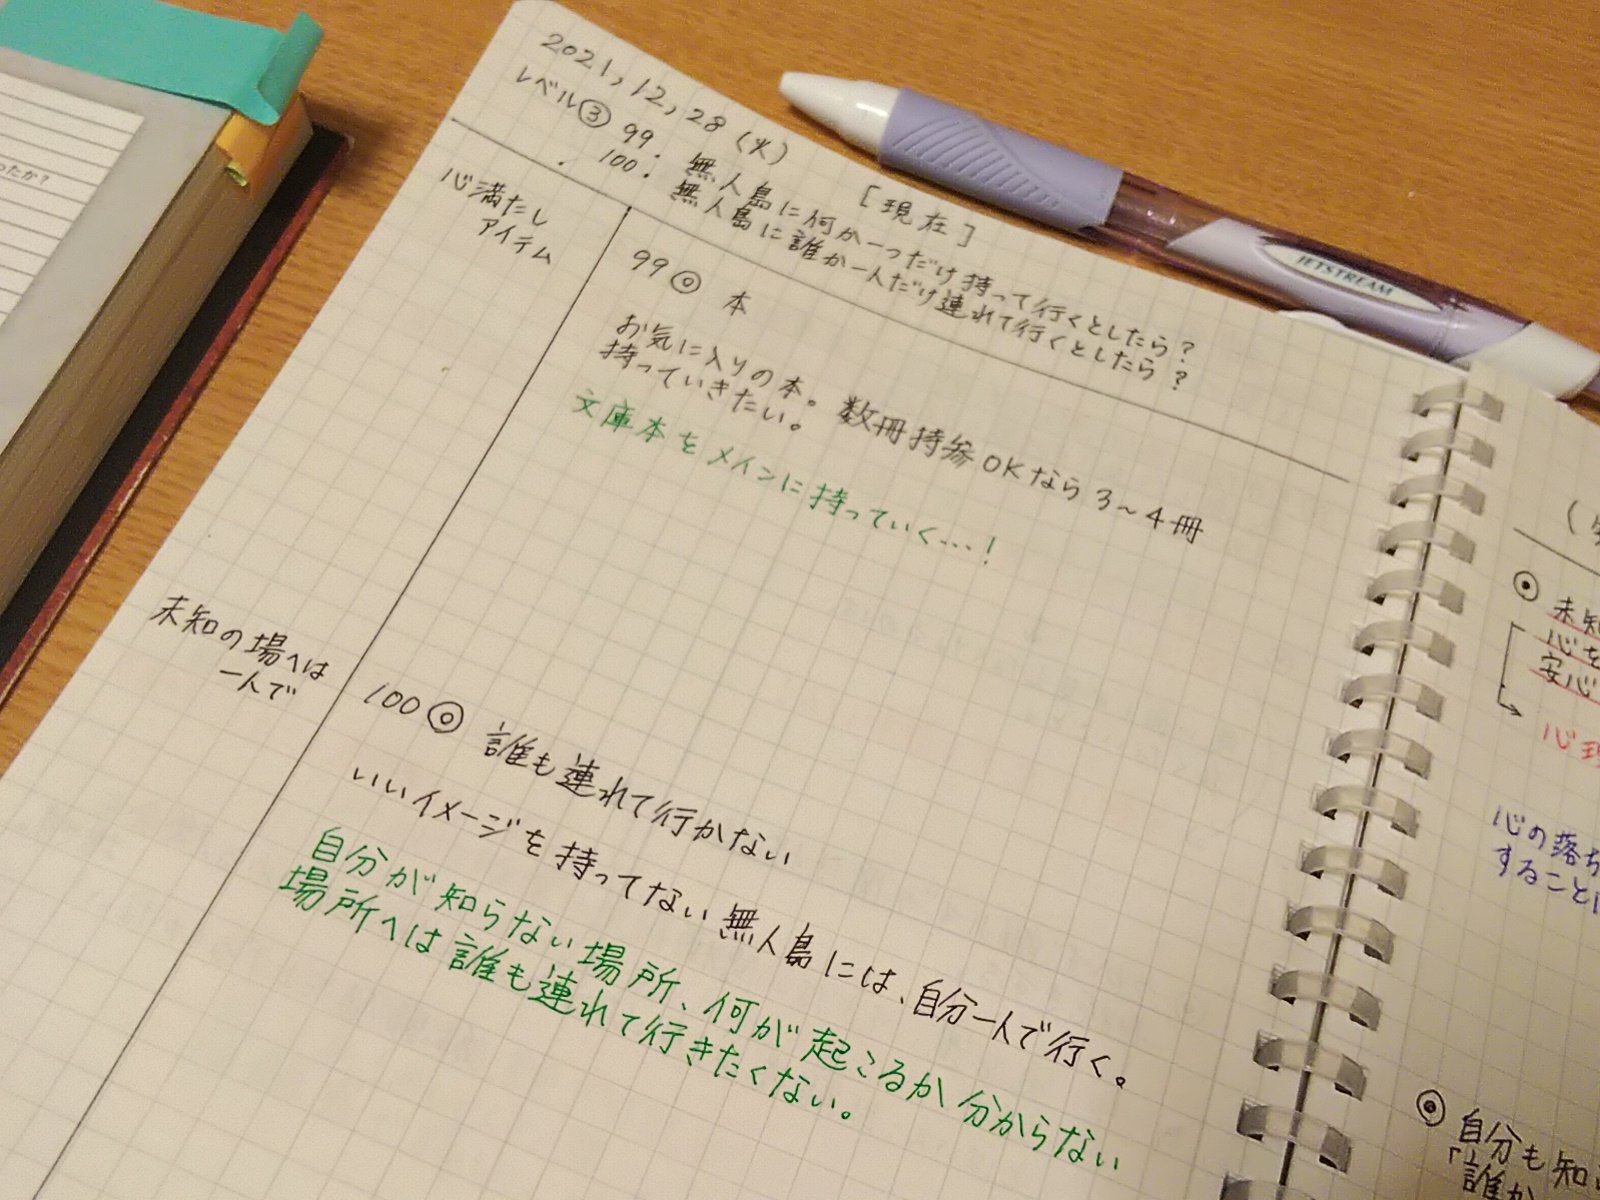 2021,12,28(火)
レベル③ [現在]
99: 無人島に何か一つだけ持って行くとしたら?
100: 無人島に誰か一人だけ連れて行くとしたら?
心満たし
アイテム
99◎ 本
お気に入りの本。数冊持参OKなら3〜4冊
持っていきたい。
文庫本をメインに持っていく…!
未知の場へは
一人で
100◎ 誰も連れて行かない
いいイメージを持ってない無人島には、自分一人で行く。
自分が知らない場所、何が起こるか分からない
場所へは誰も連れて行きたくない。
JETSTREAM
ったか?
◎ 未知
心を
安心
心理
心の落ち
することに
◎ 自分も知
「誰か